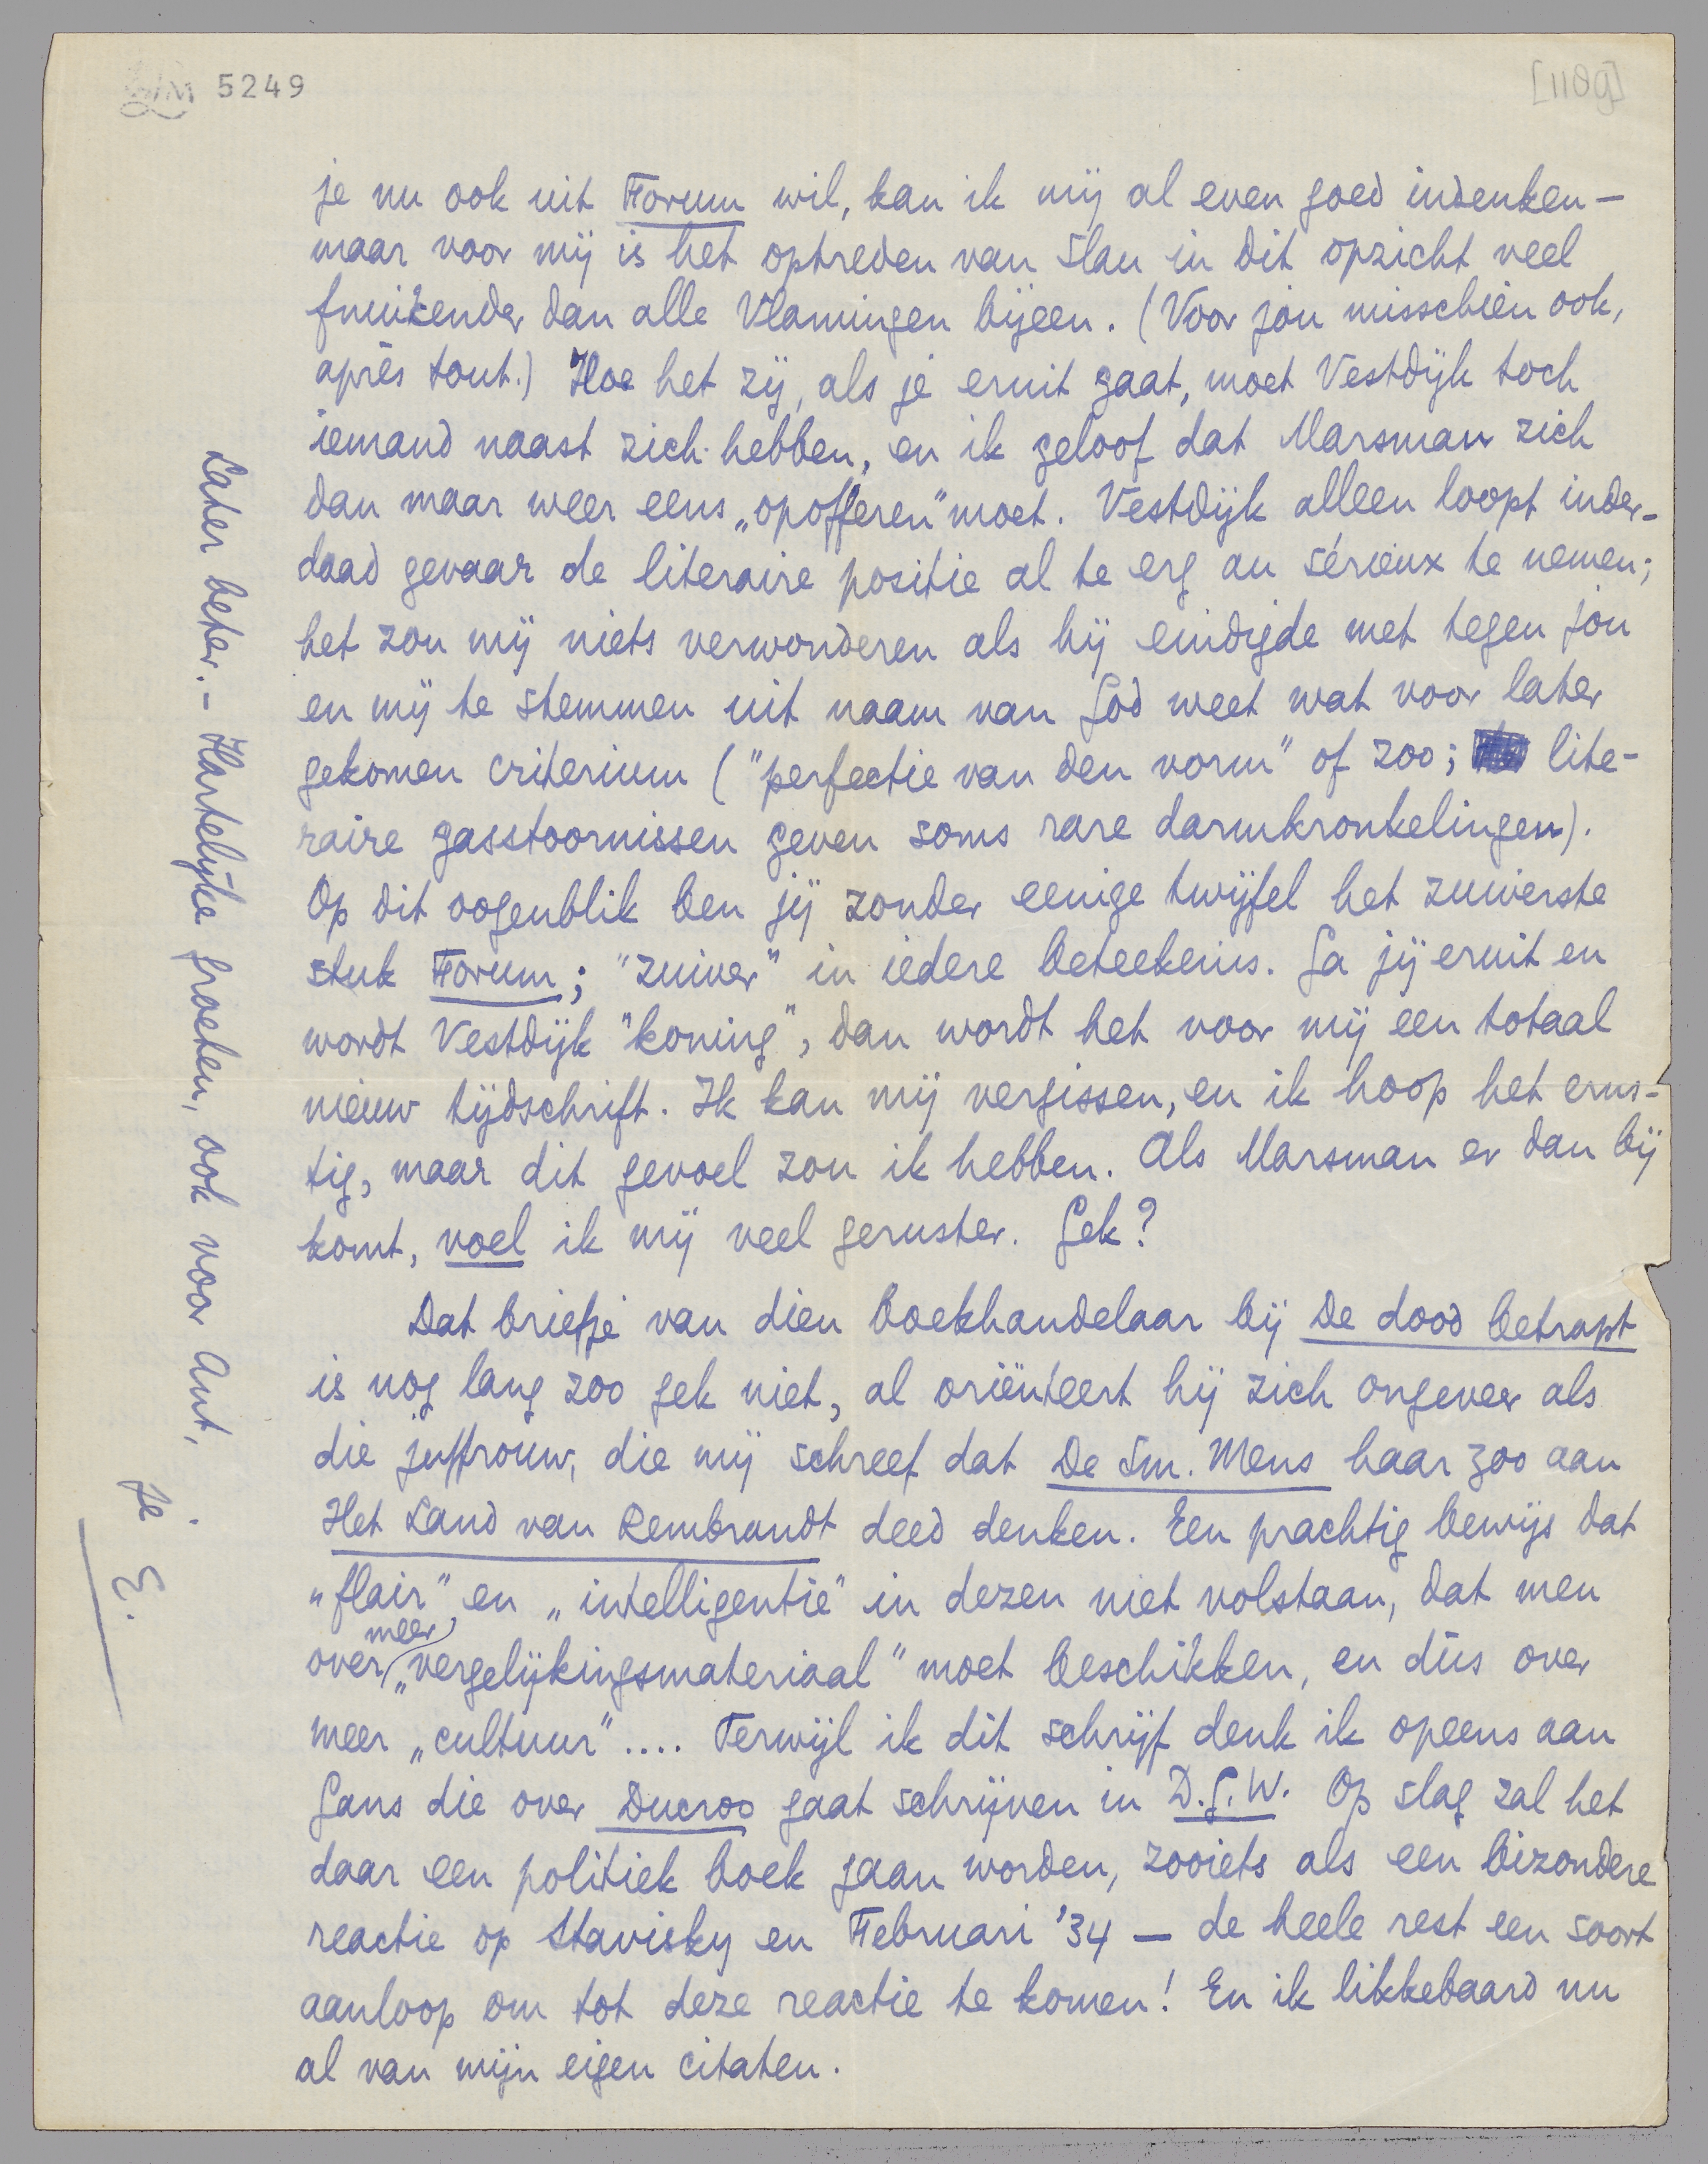 5249
[110g]
je nu ook uit Forum wil, kan ik mij al even goed indenken —
maar voor mij is het optreden van Slau in dit opzicht veel
fnuikender dan alle Vlamingen bijeen. (Voor jóu misschien ook,
après tout.) Hoe het zij, als je eruit gaat, moet Vestdijk toch
iemand naast zich hebben, en ik geloof dat Marsman zich
dan maar weer eens „opofferen" moet. Vestdijk alleen loopt inder-
daad gevaar de literaire positie al te erg au sérieux te nemen;
het zou mij niets verwonderen als hij eindigde met tegen jóu
en mij te stemmen uit naam van God weet wat voor later
gekomen criterium ("perfectie van den vorm" of zoo; lite-
raire gasstoornissen geven soms rare darmkronkelingen).
Op dit oogenblik ben jij zonder eenige twijfel het zuiverste
stuk Forum; "zuiver" in iedere beteekenis. Ga jij eruit en
wordt Vestdijk "koning", dan wordt het voor mij een totaal
nieuw tijdschrift. Ik kan mij vergissen, en ik hoop het erns-
tig, maar dit gevoel zou ik hebben. Als Marsman er dan bij
komt, voel ik mij veel geruster. Gek?
Dat briefje van dien boekhandelaar bij De dood betrapt
is nog lang zoo gek niet, al oriënteert hij zich ongeveer als
die juffrouw, die mij schreef dat De Sm. Mens haar zoo aan
Het Land van Rembrandt deed denken. Een prachtig bewijs dat
„flair" en „intelligentie" in dezen niet volstaan, dat men
over meer „vergelijkingsmateriaal" moet beschikken, en dús over
meer „cultuur".... Terwijl ik dit schrijf denk ik opeens aan
Gans die over Ducroo gaat schrijven in D.G.W. Op slag zal het
daar een politiek boek gaan worden, zooiets als een bizondere
reactie op Stavisky en Februari '34 — de heele rest een soort
aanloop om tot deze reactie te komen! En ik likkebaard nu
al van mijn eigen citaten.
Later beter. – Hartelijke groeten, ook voor Ant,
je E.